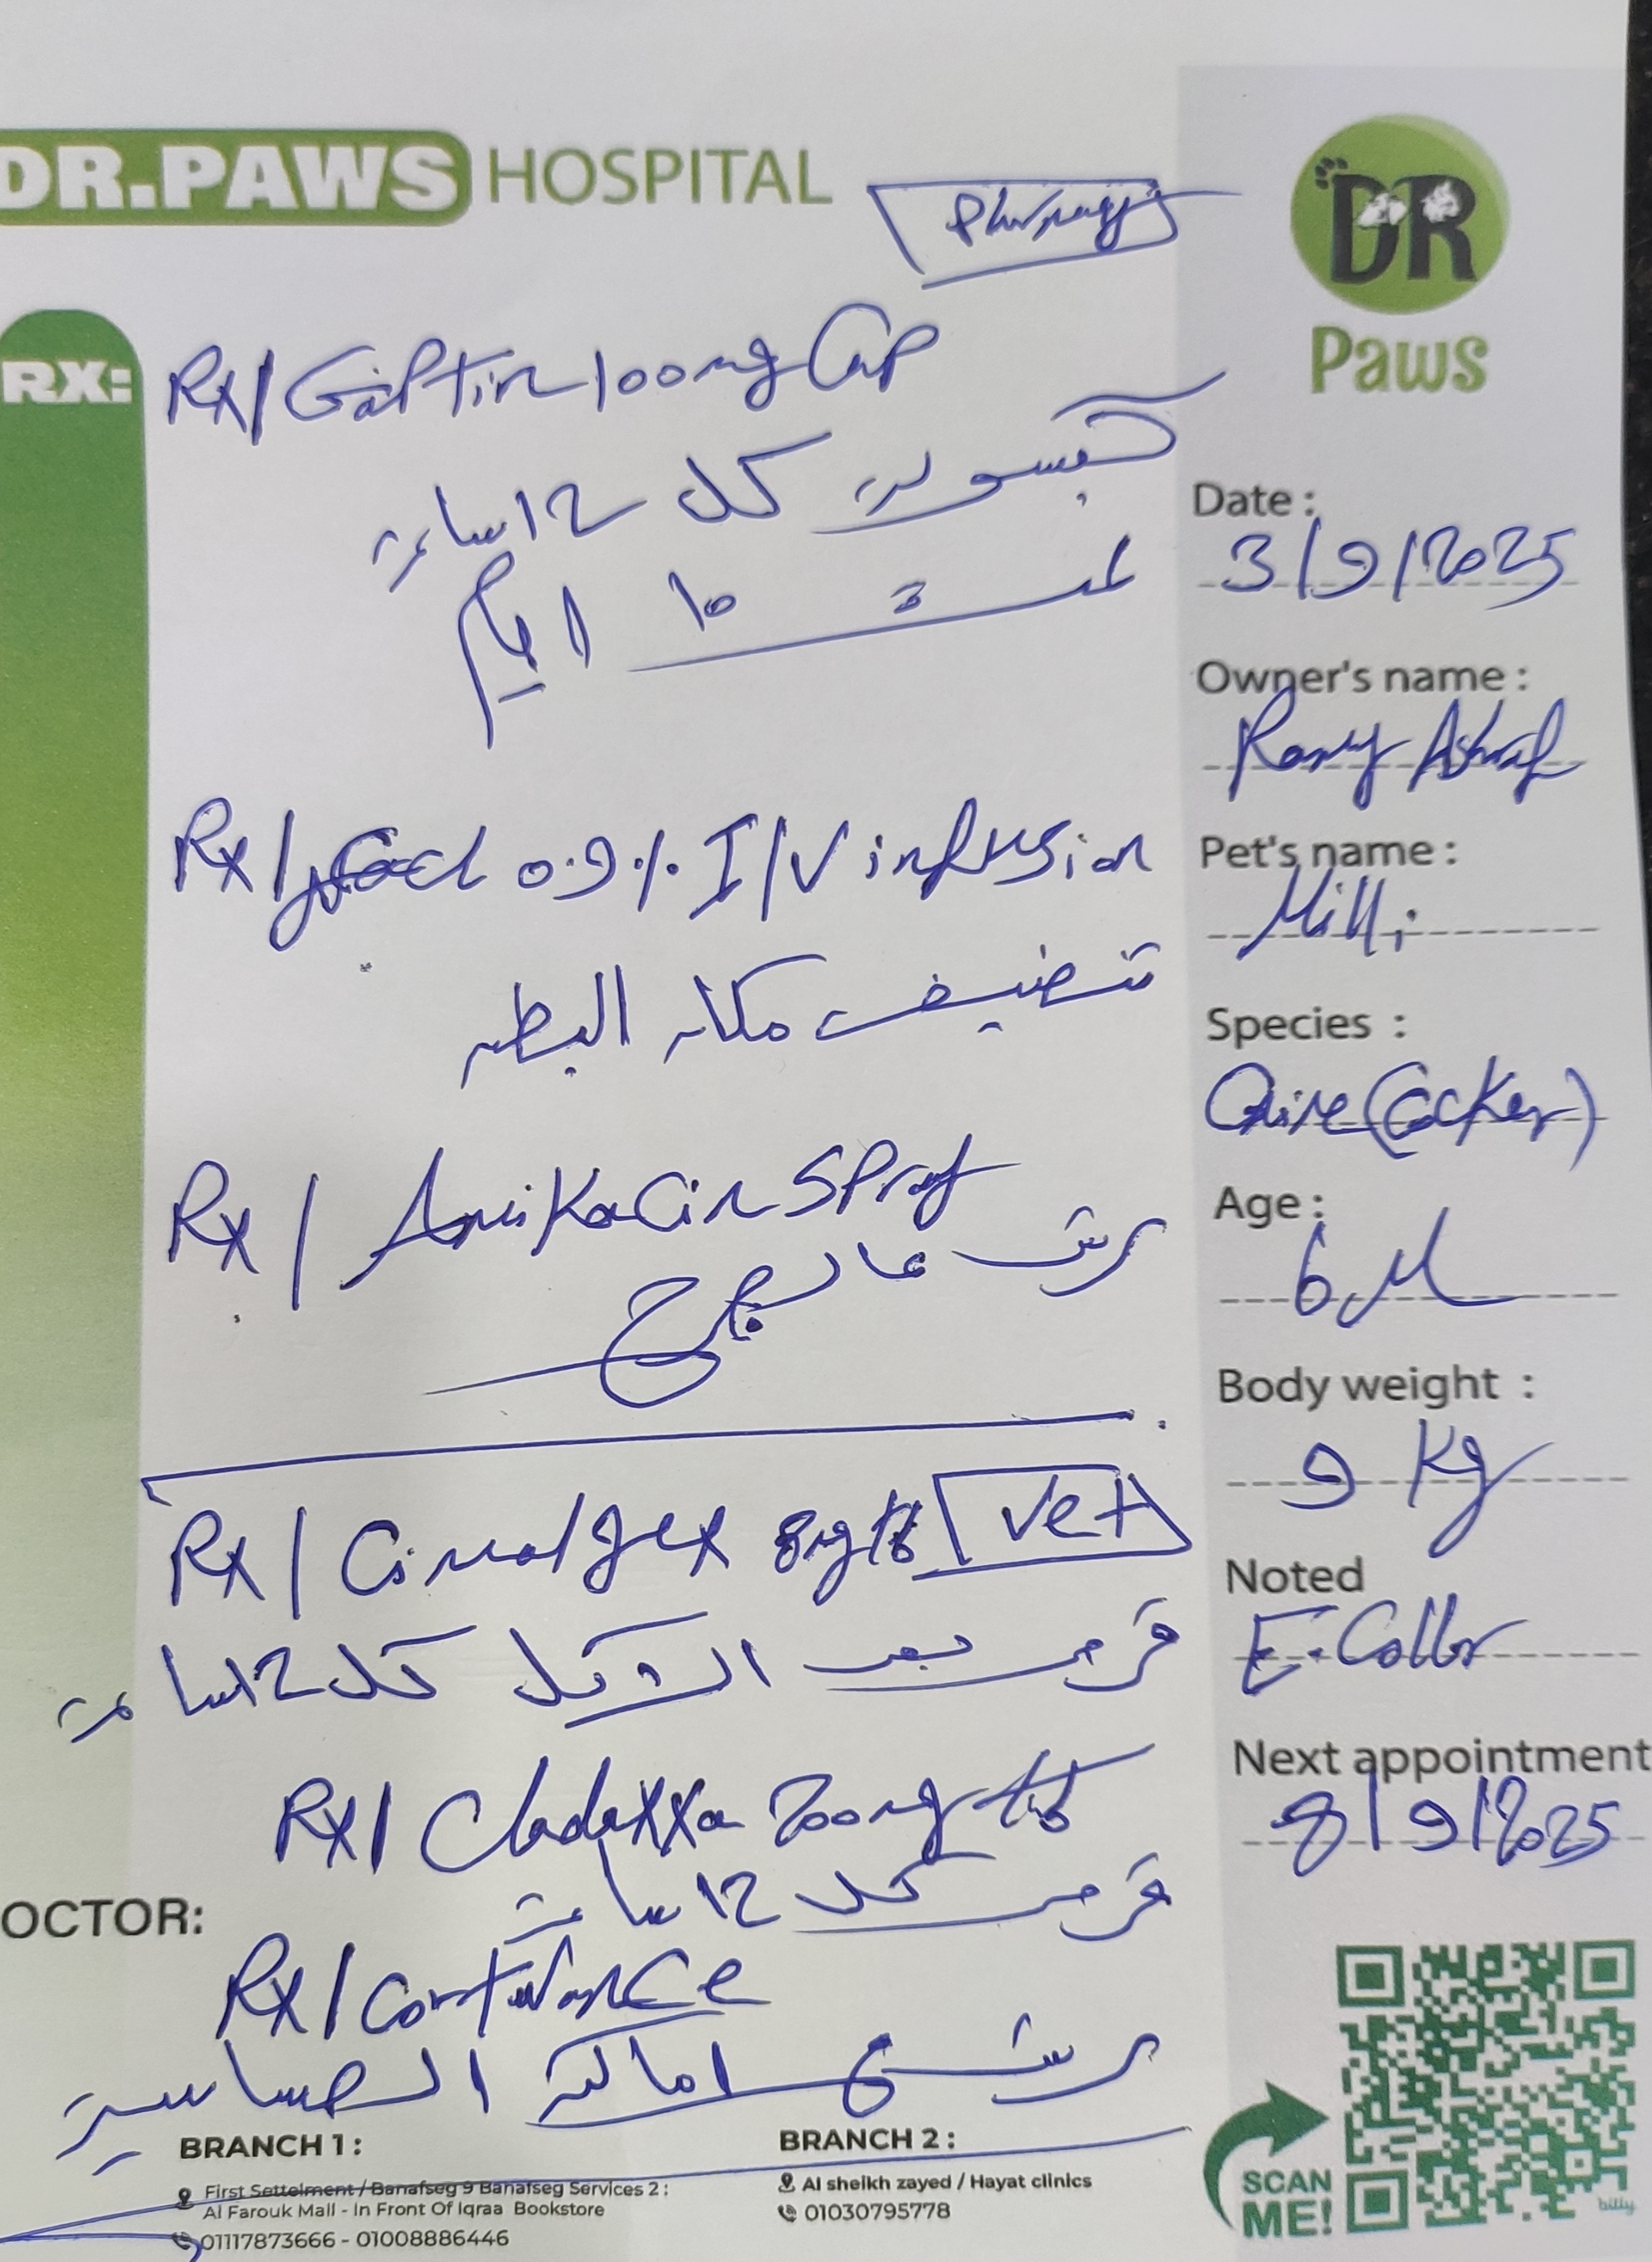 DR.PAWS HOSPITAL
Pharmacy
DR
Paws
RX:
Rx/ Gaptin 100mg Cap
كبسولة كل 12 ساعة
لمدة 10 ايام
Rx/ Nacl 0.9% I/V infusion
تنضيف مكان البطن
Rx/ Amikacin Spray
يرش عالجرح
Vet
Rx/ Cimalgex 8mg tab
قرص بعد الاكل كل 12 ساعة
Rx/ Cladaxxa 200mg tab
قرص كل 12 ساعة
Rx/ Cortavance
يرش ع اماكن الحساسية
Date :
3/9/2025
Owner's name :
Ramy Ashraf
Pet's name :
Milli
Species :
Canine (Cocker)
Age :
6 M
Body weight :
9 Kg
Noted
E-Collar
Next appointment
8/9/2025
OCTOR:
BRANCH 1 :
First Settelment / Banafseg 9 Banafseg Services 2 :
Al Farouk Mall - In Front Of Iqraa Bookstore
01117873666 - 01008886446
BRANCH 2 :
Al sheikh zayed / Hayat clinics
01030795778
SCAN
ME!
billy